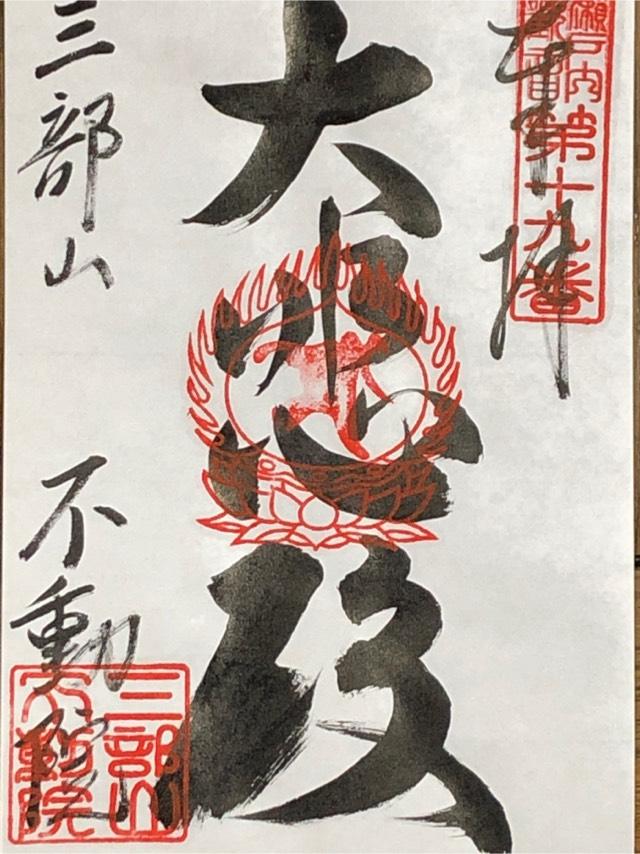 奉拝
瀬戸内
観音
第十九番
大悲殿
三部山 不動院
三部山
不動院